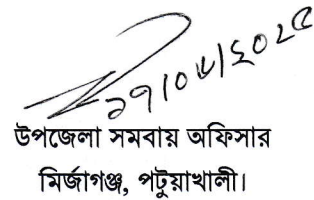 ২৭/০৮/২০২৫
উপজেলা সমবায় অফিসার
মির্জাগঞ্জ, পটুয়াখালী।